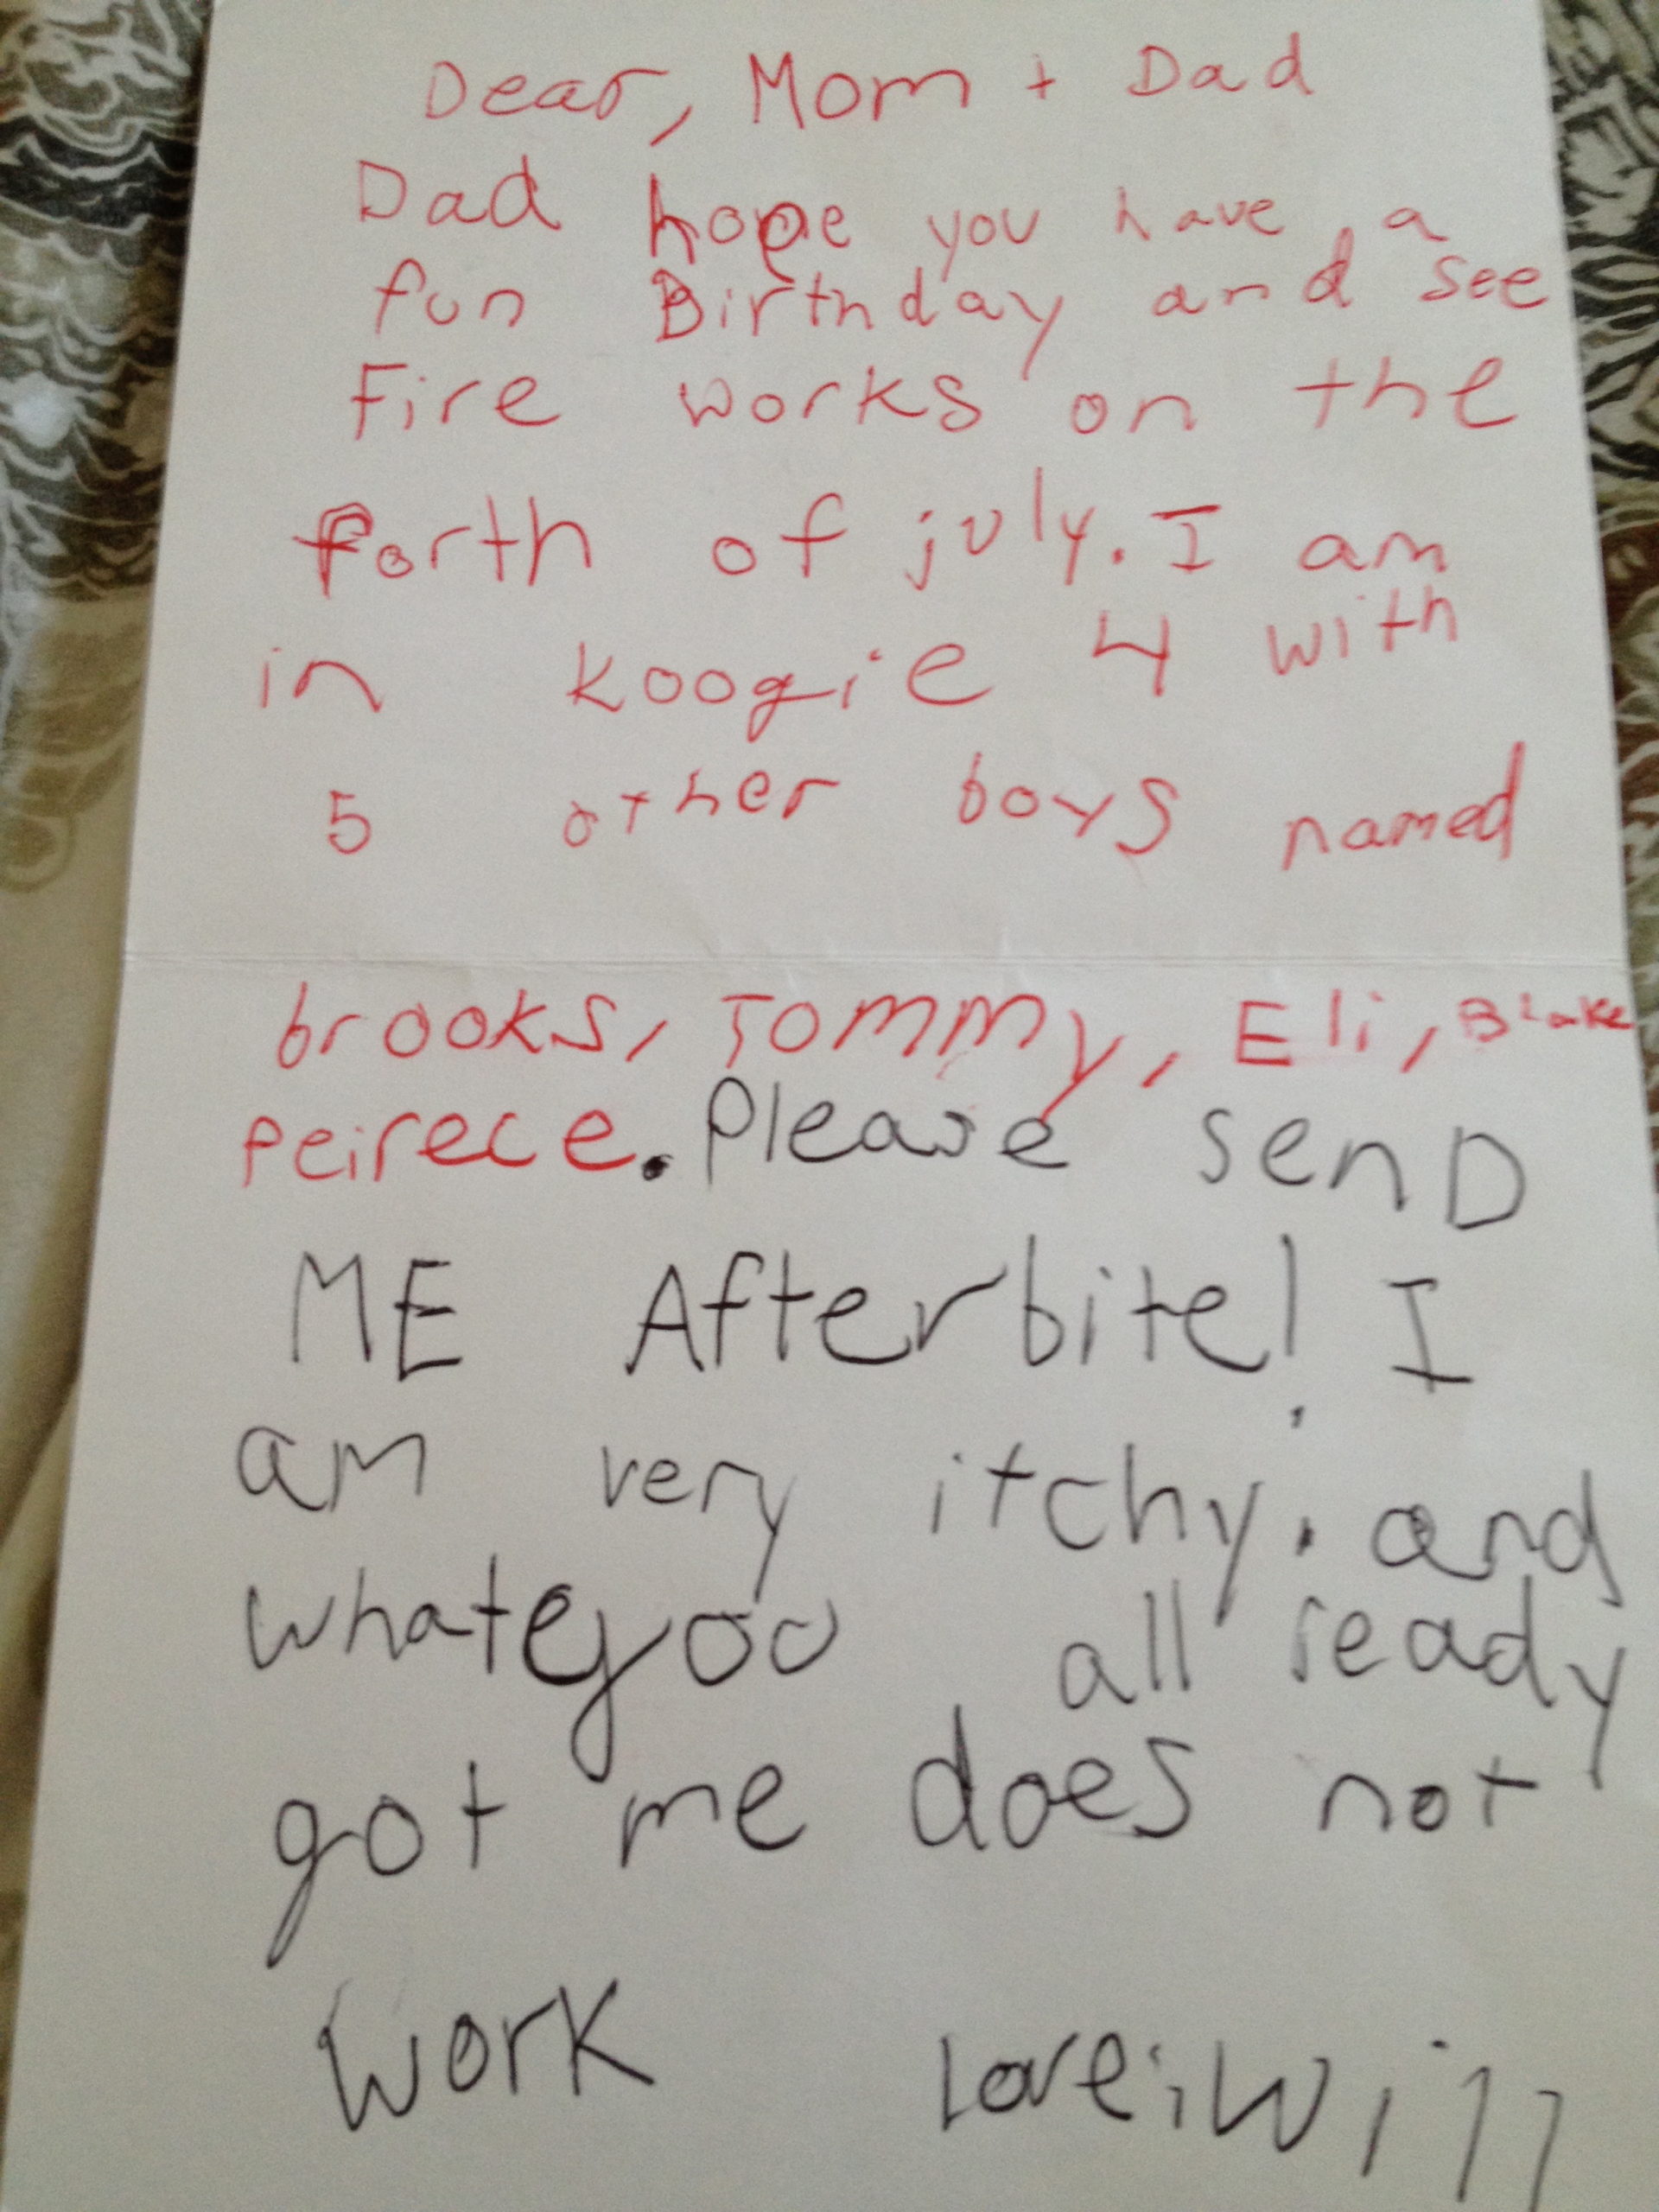 Dear, Mom + Dad
Dad hope you have a
fun Birthday and see
Fire works on the
forth of july. I am
in koogie 4 with
5 other boys named
brooks, Tommy, Eli, Blake
peirece. Please senD
ME Afterbite! I
am very itchy. and
whateyou all ready
got me does not
work love; Will